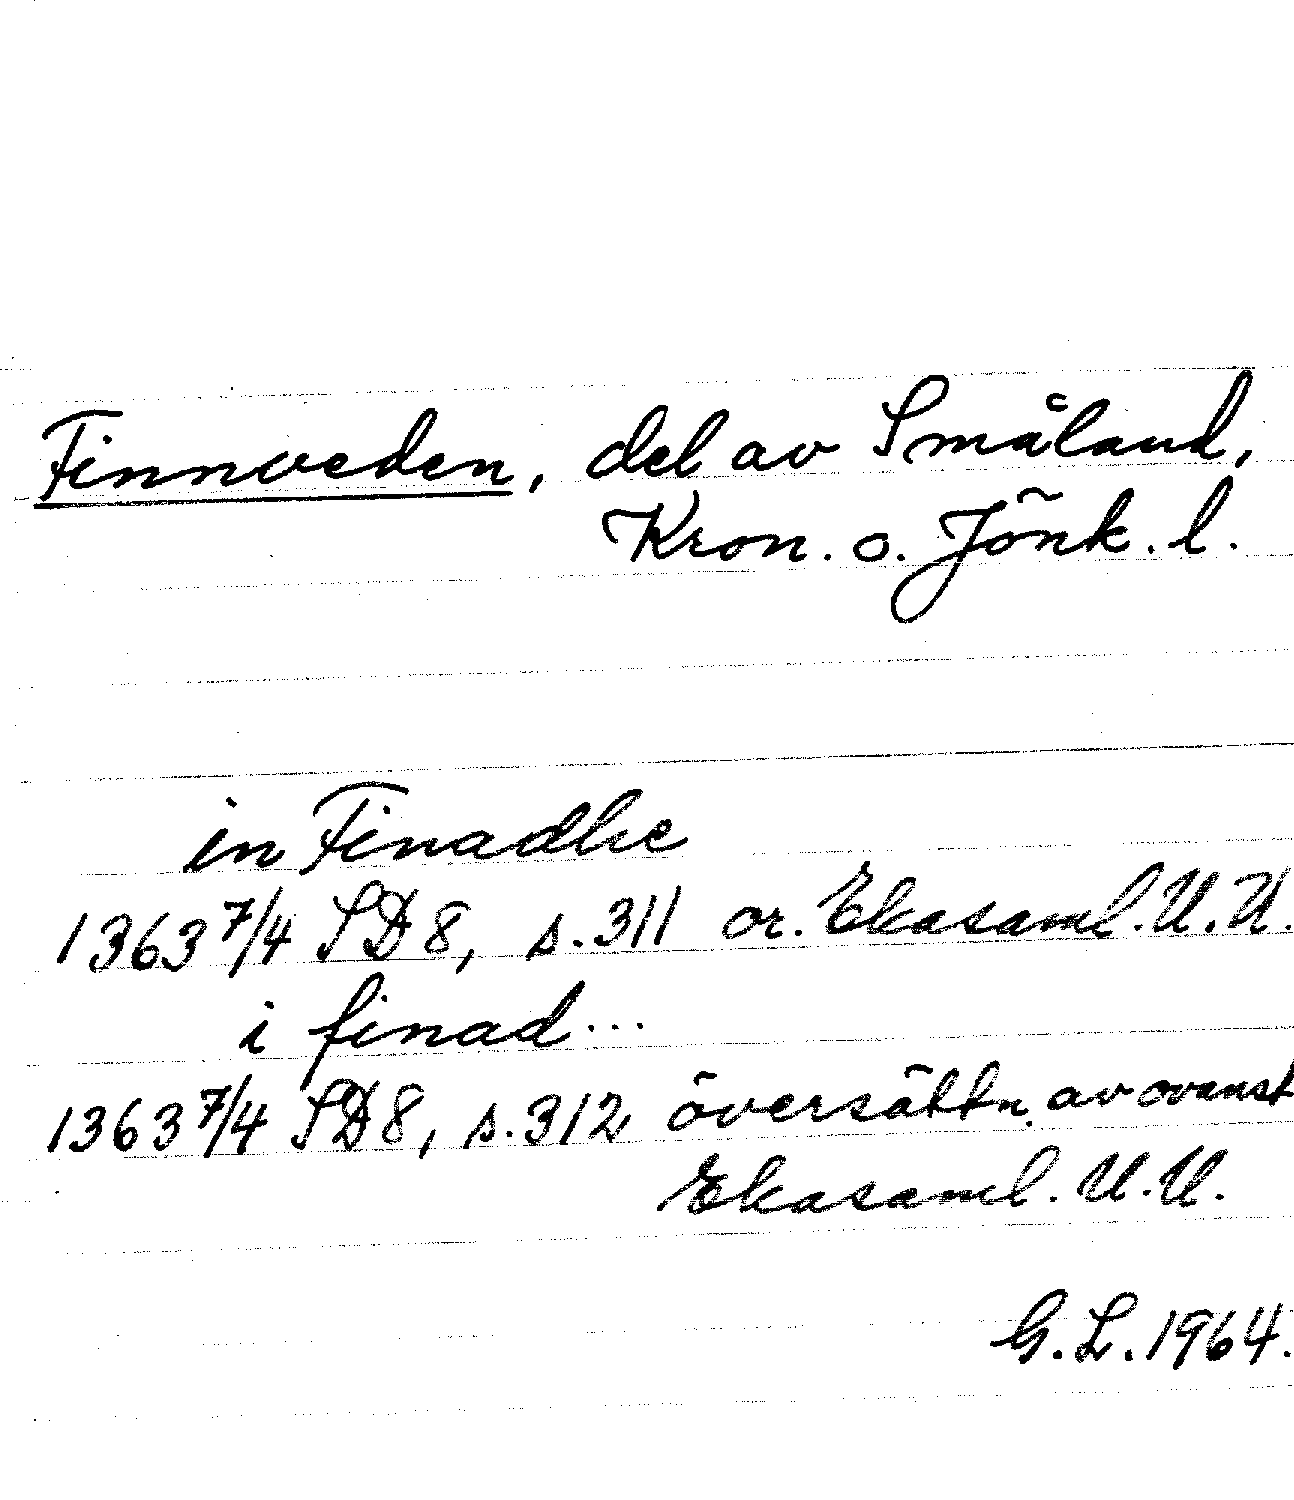 Finnveden, del av Småland,
Kron. o. Jönk. l.
in Finadhe
1363 7/4 SD 8, s. 311 or. Ekasaml. U.U.
i finad...
1363 7/4 SD 8, s. 312 översättn. av ovanst
Ekasaml. U.U.
G.L. 1964.